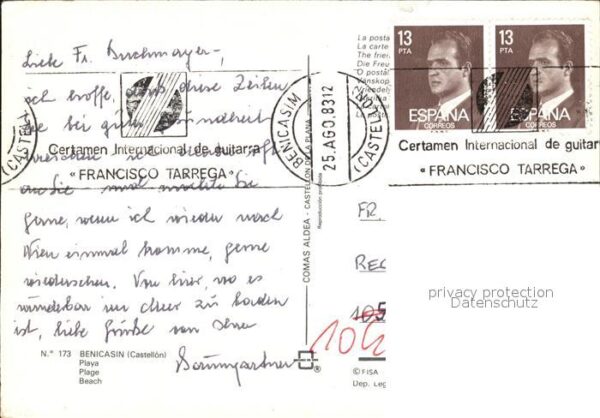 Liebe Fr. Buchmayer,
ich hoffe, dass diese Zeilen
Sie bei guter Gesundheit
Certamen Internacional de guitarra
« FRANCISCO TARREGA »
an Sie und möchte Sie
gerne, wenn ich wieder nach
Wien einmal komme, gerne
wiedersehen. Von hier, wo es
wunderbar im Meer zu baden
ist, liebe Grüße von Ihrer
Baumgartner
N.° 173 BENICASIN (Castellón)
Playa
Plage
Beach
(CASTELL
BENICASIM
25.AGO.8312
(CASTELLON)
COMAS ALDEA - CASTELLON DE LA PLANA
Reproducción prohibida
La posta
La carte
The frie
Die Freu
O postal
13
PTA
ESPAÑA
CORREOS
13
PTA
ESPAÑA
CORREOS
Certamen Internacional de guitar
« FRANCISCO TARREGA »
FR.
REC
105
104
privacy protection
Datenschutz
© FISA
Dep. Leg